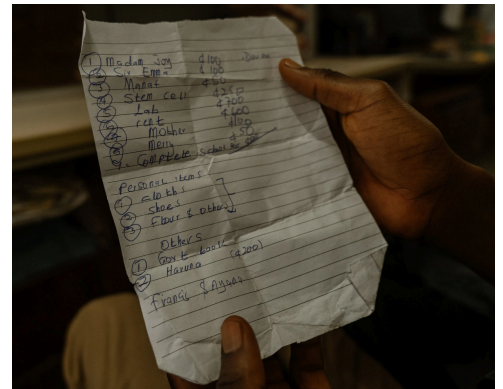 ① Madam Joy ¢100
② Sir Emma ¢100
③ Manaf ¢60
④ Stem Cell ¢250
Lab ¢700
rent ¢600
Mother ¢100
Mercy ¢50
9. Complete School
Personal items
① cloths
② shoes
③ Flour & others
Others
① Govt book
② Haruna (¢200)
Francis & Ayana